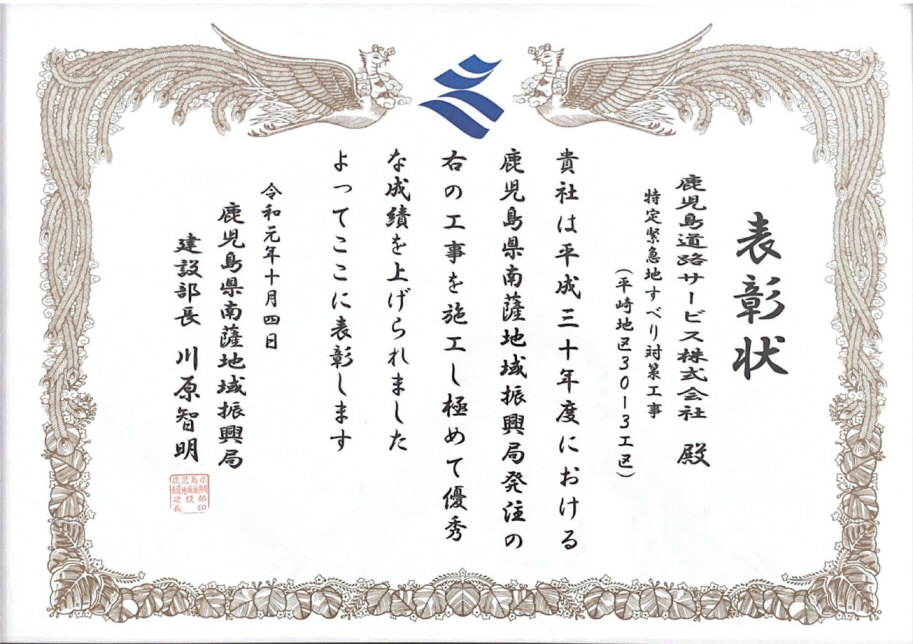 表彰状
鹿児島道路サービス株式会社 殿
特定緊急地すべり対策工事
(平崎地区30-3工区)
貴社は平成三十年度における
鹿児島県南薩地域振興局発注の
右の工事を施工し極めて優秀
な成績を上げられました
よってここに表彰します
令和元年十月四日
鹿児島県南薩地域振興局
建設部長 川原智明